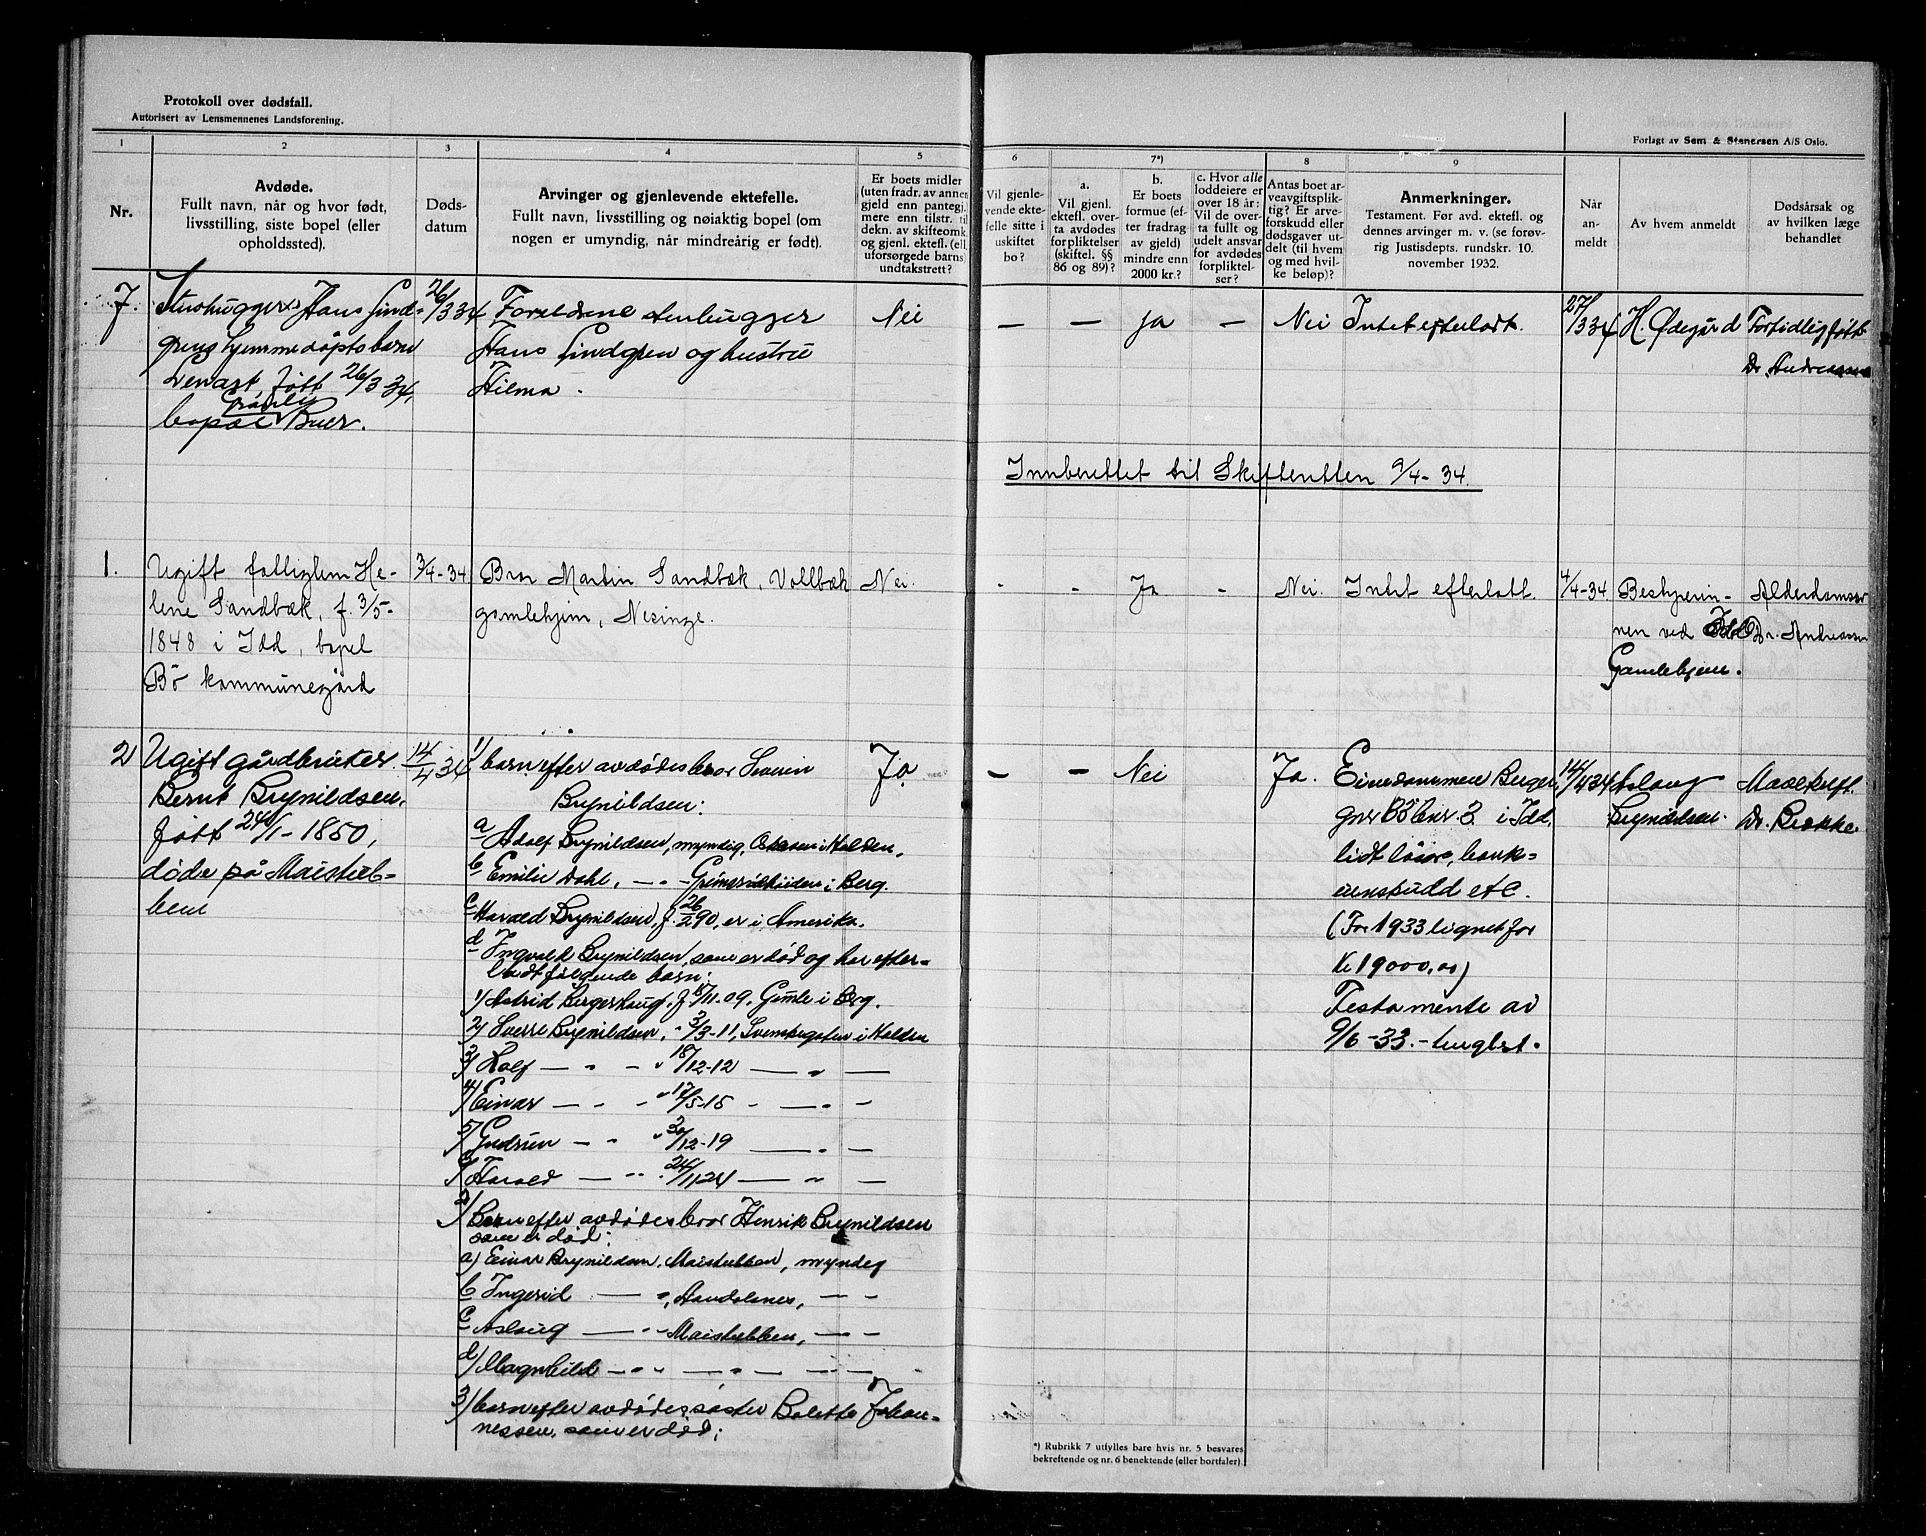 Protokoll over dødsfall.
Autorisert av Lensmennenes Landsforening.
Forlagt av Sem & Stenersen A/S Oslo.
1
2
3
4
5
6
7*)
8
9
Nr.
Avdøde.
Fullt navn, når og hvor født,
livsstilling, siste bopel (eller
opholdssted).
Døds-
datum
Arvinger og gjenlevende ektefelle.
Fullt navn, livsstilling og nøiaktig bopel (om
nogen er umyndig, når mindreårig er født).
Er boets midler
(uten fradr. av annen
gjeld enn pantegj.
mere enn tilstr. til
dekn. av skifteomk.
og gjenl. ektef. (ell.
uforsørgede barns)
undtakstrett?
Vil gjenle-
vende ekte-
felle sitte i
uskiftet
bo?
a.
Vil gjenl.
ektefl. over-
ta avdødes
forpliktelser
(skiftel. §§
86 og 89)?
b.
Er boets
formue (ef-
ter fradrag
av gjeld)
mindre enn
2000 kr.?
c. Hvor alle
loddeiere er
over 18 år:
Vil de over-
ta fullt og
udelt ansvar
for avdødes
forpliktel-
ser?
Antas boet ar-
veavgiftsplik-
tig? Er arve-
forskudd eller
dødsgaver ut-
delt (til hvem
og med hvil-
ke beløp)?
Anmerkninger.
Testament. Før avd. ektefl. og
dennes arvinger m. v. (se forøv-
rig Justisdepts. rundskr. 10.
november 1932.
Når
an-
meldt
Av hvem anmeldt
Dødsårsak og
av hvilken læge
behandlet
7. Stenhugger Hans Lind-
grens hjemmedøpte barn
Lenart født 26/3 34,
bopæl Buer.
26/3 34
Foreldrene stenhugger
Hans Lindgren og hustru
Hilma.
Nei — — ja — Nei Intet efterladt.
27/3 34 H. Ødegård Fortidlig født
Dr. Andreassen
Innberettet til Skifteretten 9/4-34.
1. Ugift fattiglem He-
lene Sandbæk, f. 3/5-
1848 i Idd, bopel
Bø kommunegård
3/4-34
Bror Martin Sandbæk, Vollbæk
gamlehjem, Nesinge.
Nei. - - Ja - Nei. Intet efterlatt.
4/4-34 Bestyrerin-
nen ved Idd
Gamlehjem.
Alderdomssv
Dr. Andreassen
2 Ugift gårdbruker
Bernt Brynildsen,
født 24/1-1850,
døde på Maistub-
ben
14/4 34
1/ barn efter avdødes bror Severin
Brynildsen:
a Adolf Brynildsen, myndig, i Halden,
b Emilie Dahl, — " — i Berg.
c Harald Brynildsen, f. 26/2 90, er i Amerika.
d Ingvald Brynildsen, som er død og har efter-
latt følgende barn:
1/ Astrid Bergerhaug, f. 15/11-09, Gimle i Berg.
2/ Sverre Brynildsen, " 3/3-11, Svenskegaten i Halden
3/ Rolf — " — " 18/12-12 — " —
4/ Einar — " — " 17/5-15 - — " —
5/ Gudrun — " " 30/12-19 — " —
6/ Harald — " " 24/1 24 — " —
2/ Barn efter avdødes bror Henrik Brynildsen
som er død:
a) Einar Brynildsen, Maistubben, myndig
b Ingerid — ", Aandalsnes, — " —
c Aslaug — " - Maistubben, — " —
d/ Magnhild — " " — " — — " —
3/ barn efter avdødes søster Bolette Johan-
nessen, som er død;
Ja — — Nei Ja.
Eiendommen Berger,
gnr 88 bnr. 3 i Idd,
lidt løsøre, bank-
innskudd etc.
(For 1933 lignet for
Kr 19000,00)
Testamente av
9/6-33.- tinglest.
14/4 34 Aslaug
Brynildsen.
Mavekreft.
Dr. Brekke
*) Rubrikk 7 utfylles bare hvis nr. 5 besvares
bekreftende og nr. 6 benektende (eller bortfaler).